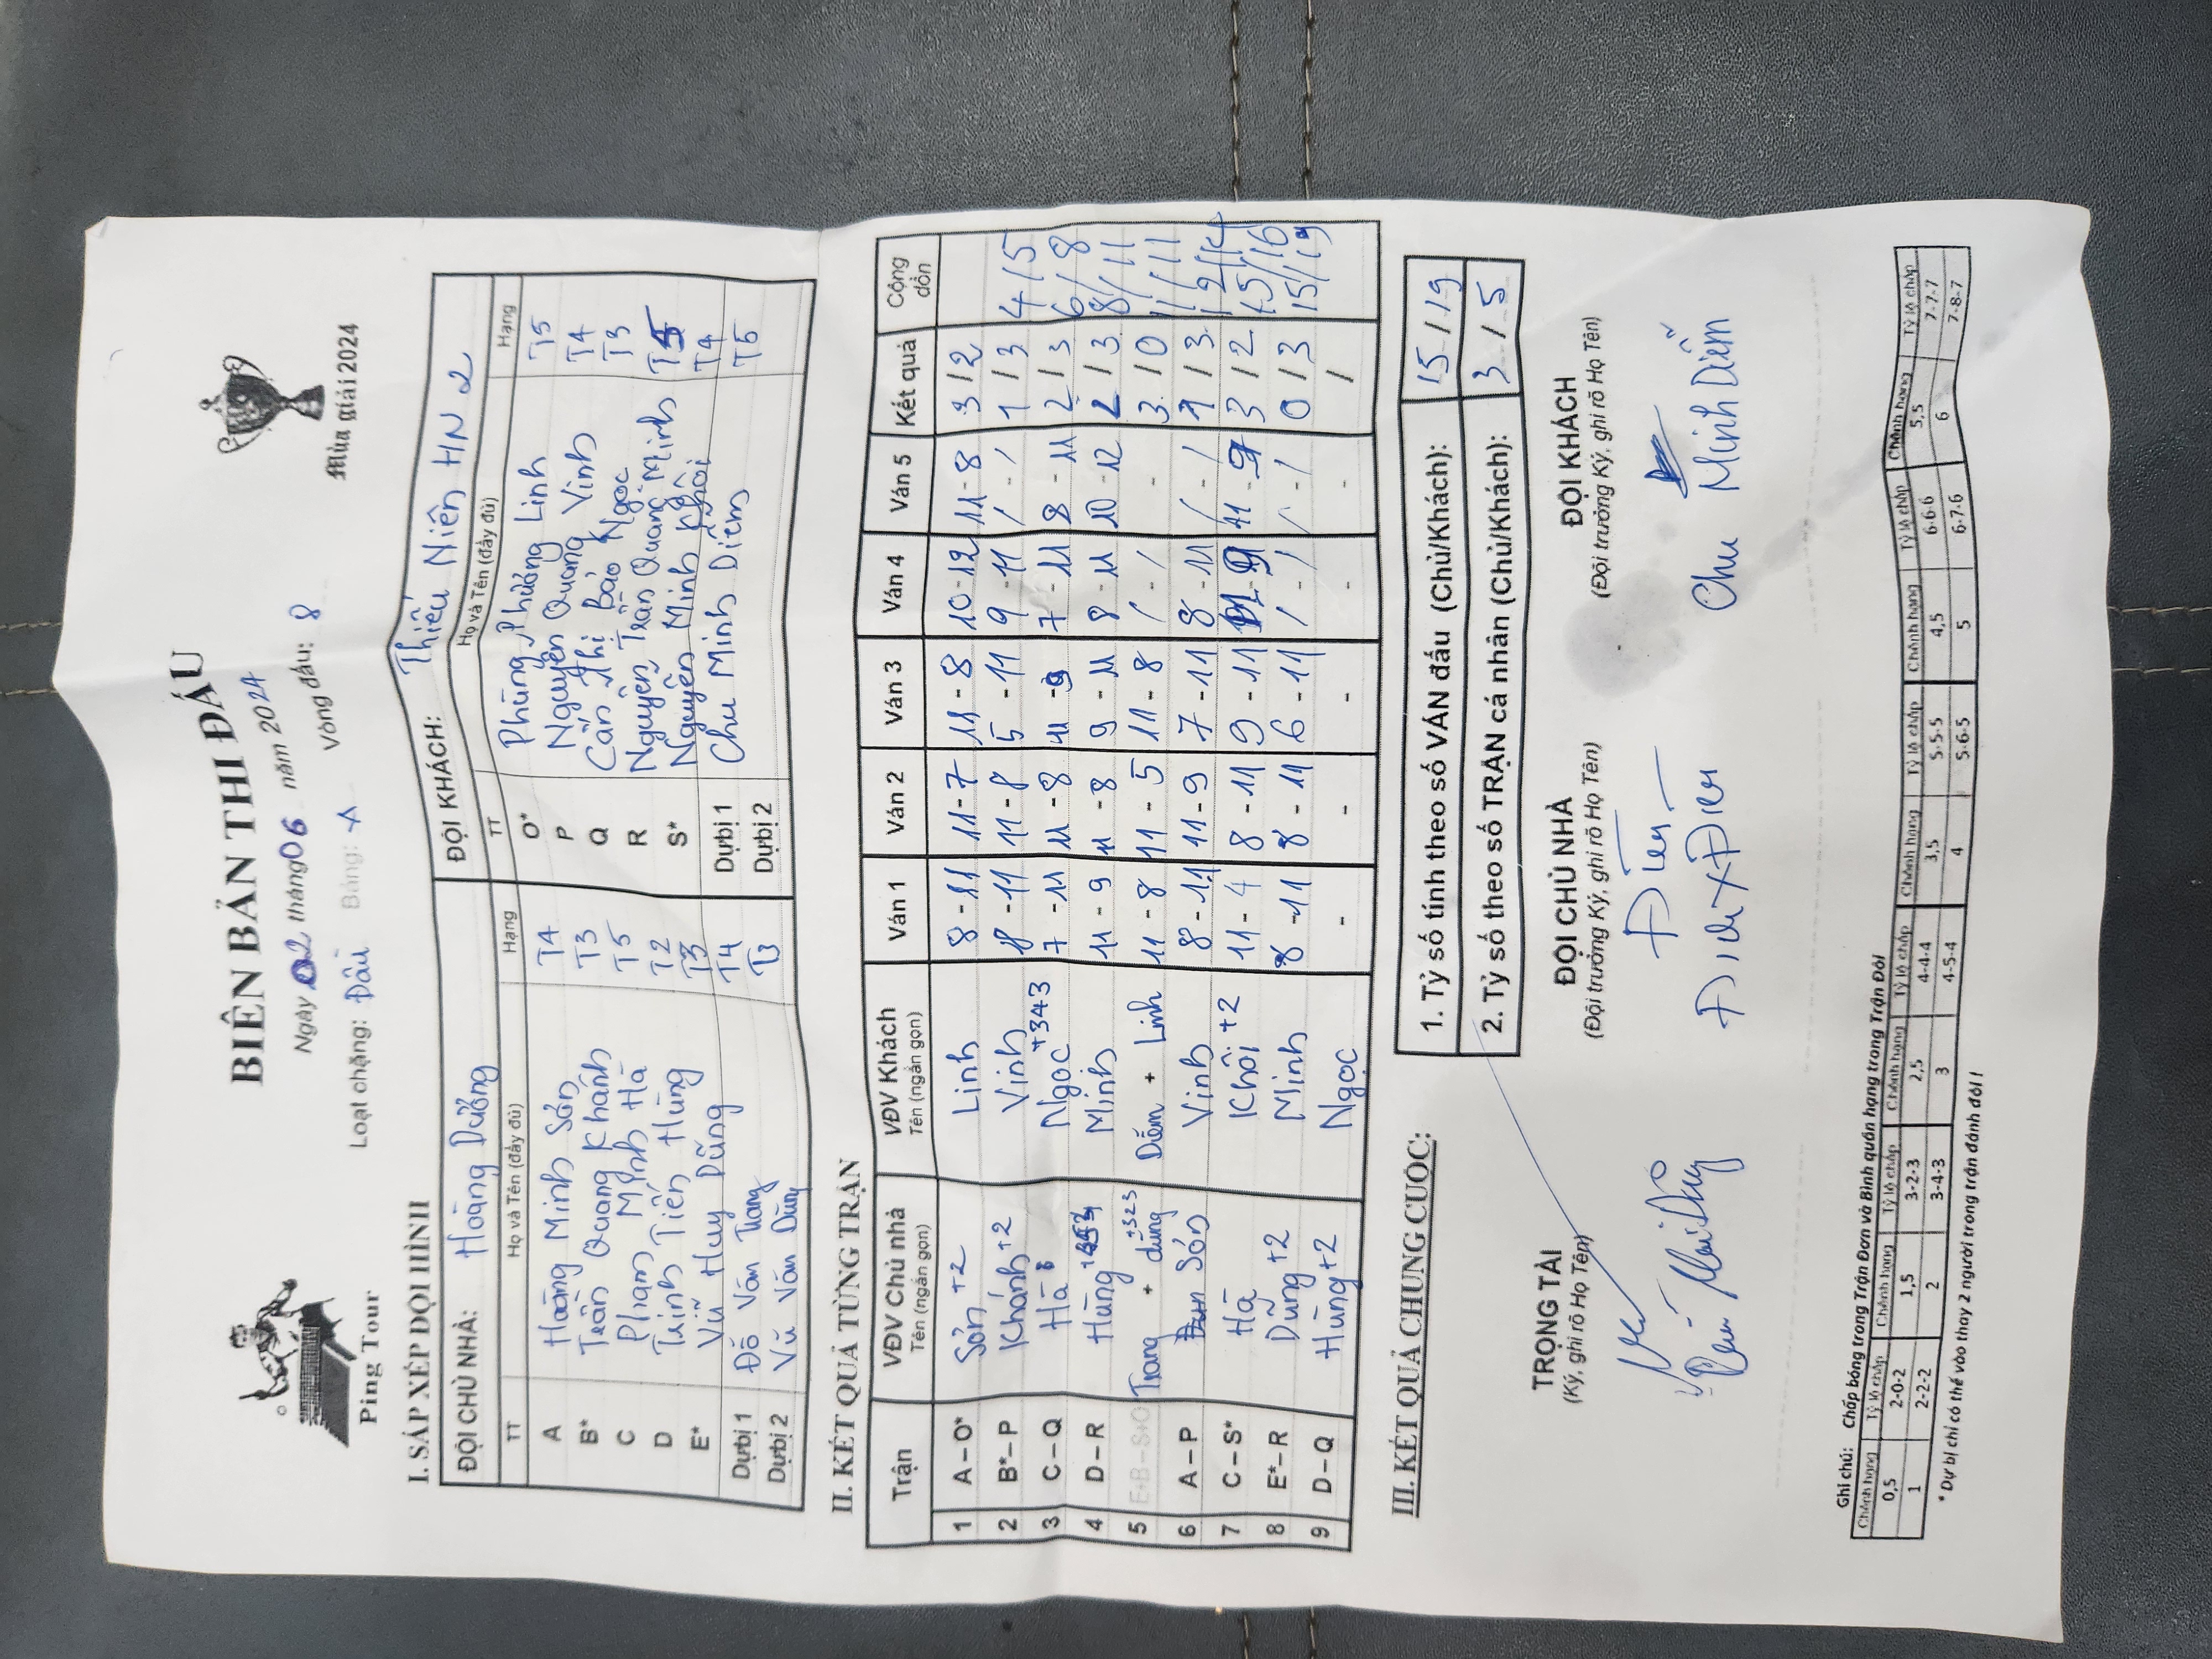 Ping Tour
BIÊN BẢN THI ĐẤU
Ngày 02 tháng 06 năm 2024
Loạt chặng: Đầu Bảng: A Vòng đấu: 8
Mùa giải 2024
I. SẮP XẾP ĐỘI HÌNH
ĐỘI CHỦ NHÀ: Hoàng Dưỡng ĐỘI KHÁCH: Thiếu Niên HN 2
TT Họ và Tên (đầy đủ) Hạng TT Họ và Tên (đầy đủ) Hạng
A Hoàng Minh Sơn T4 O* Phùng Phương Linh T5
B* Trần Quang Khánh T3 P Nguyễn Quang Vinh T4
C Phạm Minh Hà T5 Q Cấn Thị Bảo Ngọc T3
D Trịnh Tiến Hùng T2 R Nguyễn Trần Quang Minh T5
E* Vũ Huy Dũng T3 S* Nguyễn Minh Khôi T4
Dự bị 1 Đỗ Văn Trang T4 Dự bị 1 Chu Minh Diễm T5
Dự bị 2 Vũ Văn Dũng T3 Dự bị 2
II. KẾT QUẢ TỪNG TRẬN
Trận VĐV Chủ nhà Tên (ngắn gọn) VĐV Khách Tên (ngắn gọn) Ván 1 Ván 2 Ván 3 Ván 4 Ván 5 Kết quả Cộng dồn
1 A – O* Sơn +2 Linh 8 - 11 11 - 7 11 - 8 10 - 12 11 - 8 3 / 2
2 B* – P Khánh +2 Vinh 8 - 11 11 - 8 5 - 11 9 - 11 / - / 1 / 3 4 / 5
3 C – Q Hà Ngọc +343 7 - 11 11 - 8 11 - 9 7 - 11 8 - 11 2 / 3 6 / 8
4 D – R Hùng Minh 11 - 9 11 - 8 9 - 11 8 - 11 10 - 12 2 / 3 8 / 11
5 E+B – S+O Trang + dũng +323 Diễm + Linh 11 - 8 11 - 5 11 - 8 / - / - 3 / 0 11 / 11
6 A – P Sơn Vinh 8 - 11 11 - 9 7 - 11 8 - 11 / - / 1 / 3 12 / 14
7 C – S* Hà Khôi +2 11 - 4 8 - 11 9 - 11 11 - 9 3 / 2 15 / 16
8 E* – R Dũng +2 Minh 8 - 11 8 - 11 6 - 11 / - / / - / 0 / 3 15 / 19
9 D – Q Hùng +2 Ngọc - - - - - /
III. KẾT QUẢ CHUNG CUỘC:
1. Tỷ số tính theo số VÁN đấu (Chủ/Khách): 15 / 19
2. Tỷ số theo số TRẬN cá nhân (Chủ/Khách): 3 / 5
TRỌNG TÀI ĐỘI CHỦ NHÀ ĐỘI KHÁCH
(Ký, ghi rõ Họ Tên) (Đội trưởng Ký, ghi rõ Họ Tên) (Đội trưởng Ký, ghi rõ Họ Tên)
Chu Minh Diễm
Ghi chú: Chấp bóng trong Trận Đơn và Bình quân hạng trong Trận Đôi
Chênh hạng Tỷ lệ chấp Chênh hạng Tỷ lệ chấp Chênh hạng Tỷ lệ chấp Chênh hạng Tỷ lệ chấp Chênh hạng Tỷ lệ chấp Chênh hạng Tỷ lệ chấp
0,5 2-0-2 1,5 3-2-3 2,5 4-4-4 3,5 5-5-5 4,5 6-6-6 5,5 7-7-7
1 2-2-2 2 3-4-3 3 4-5-4 4 5-6-5 5 6-7-6 6 7-8-7
* Dự bị chỉ có thể vào thay 2 người trong trận đánh đôi !